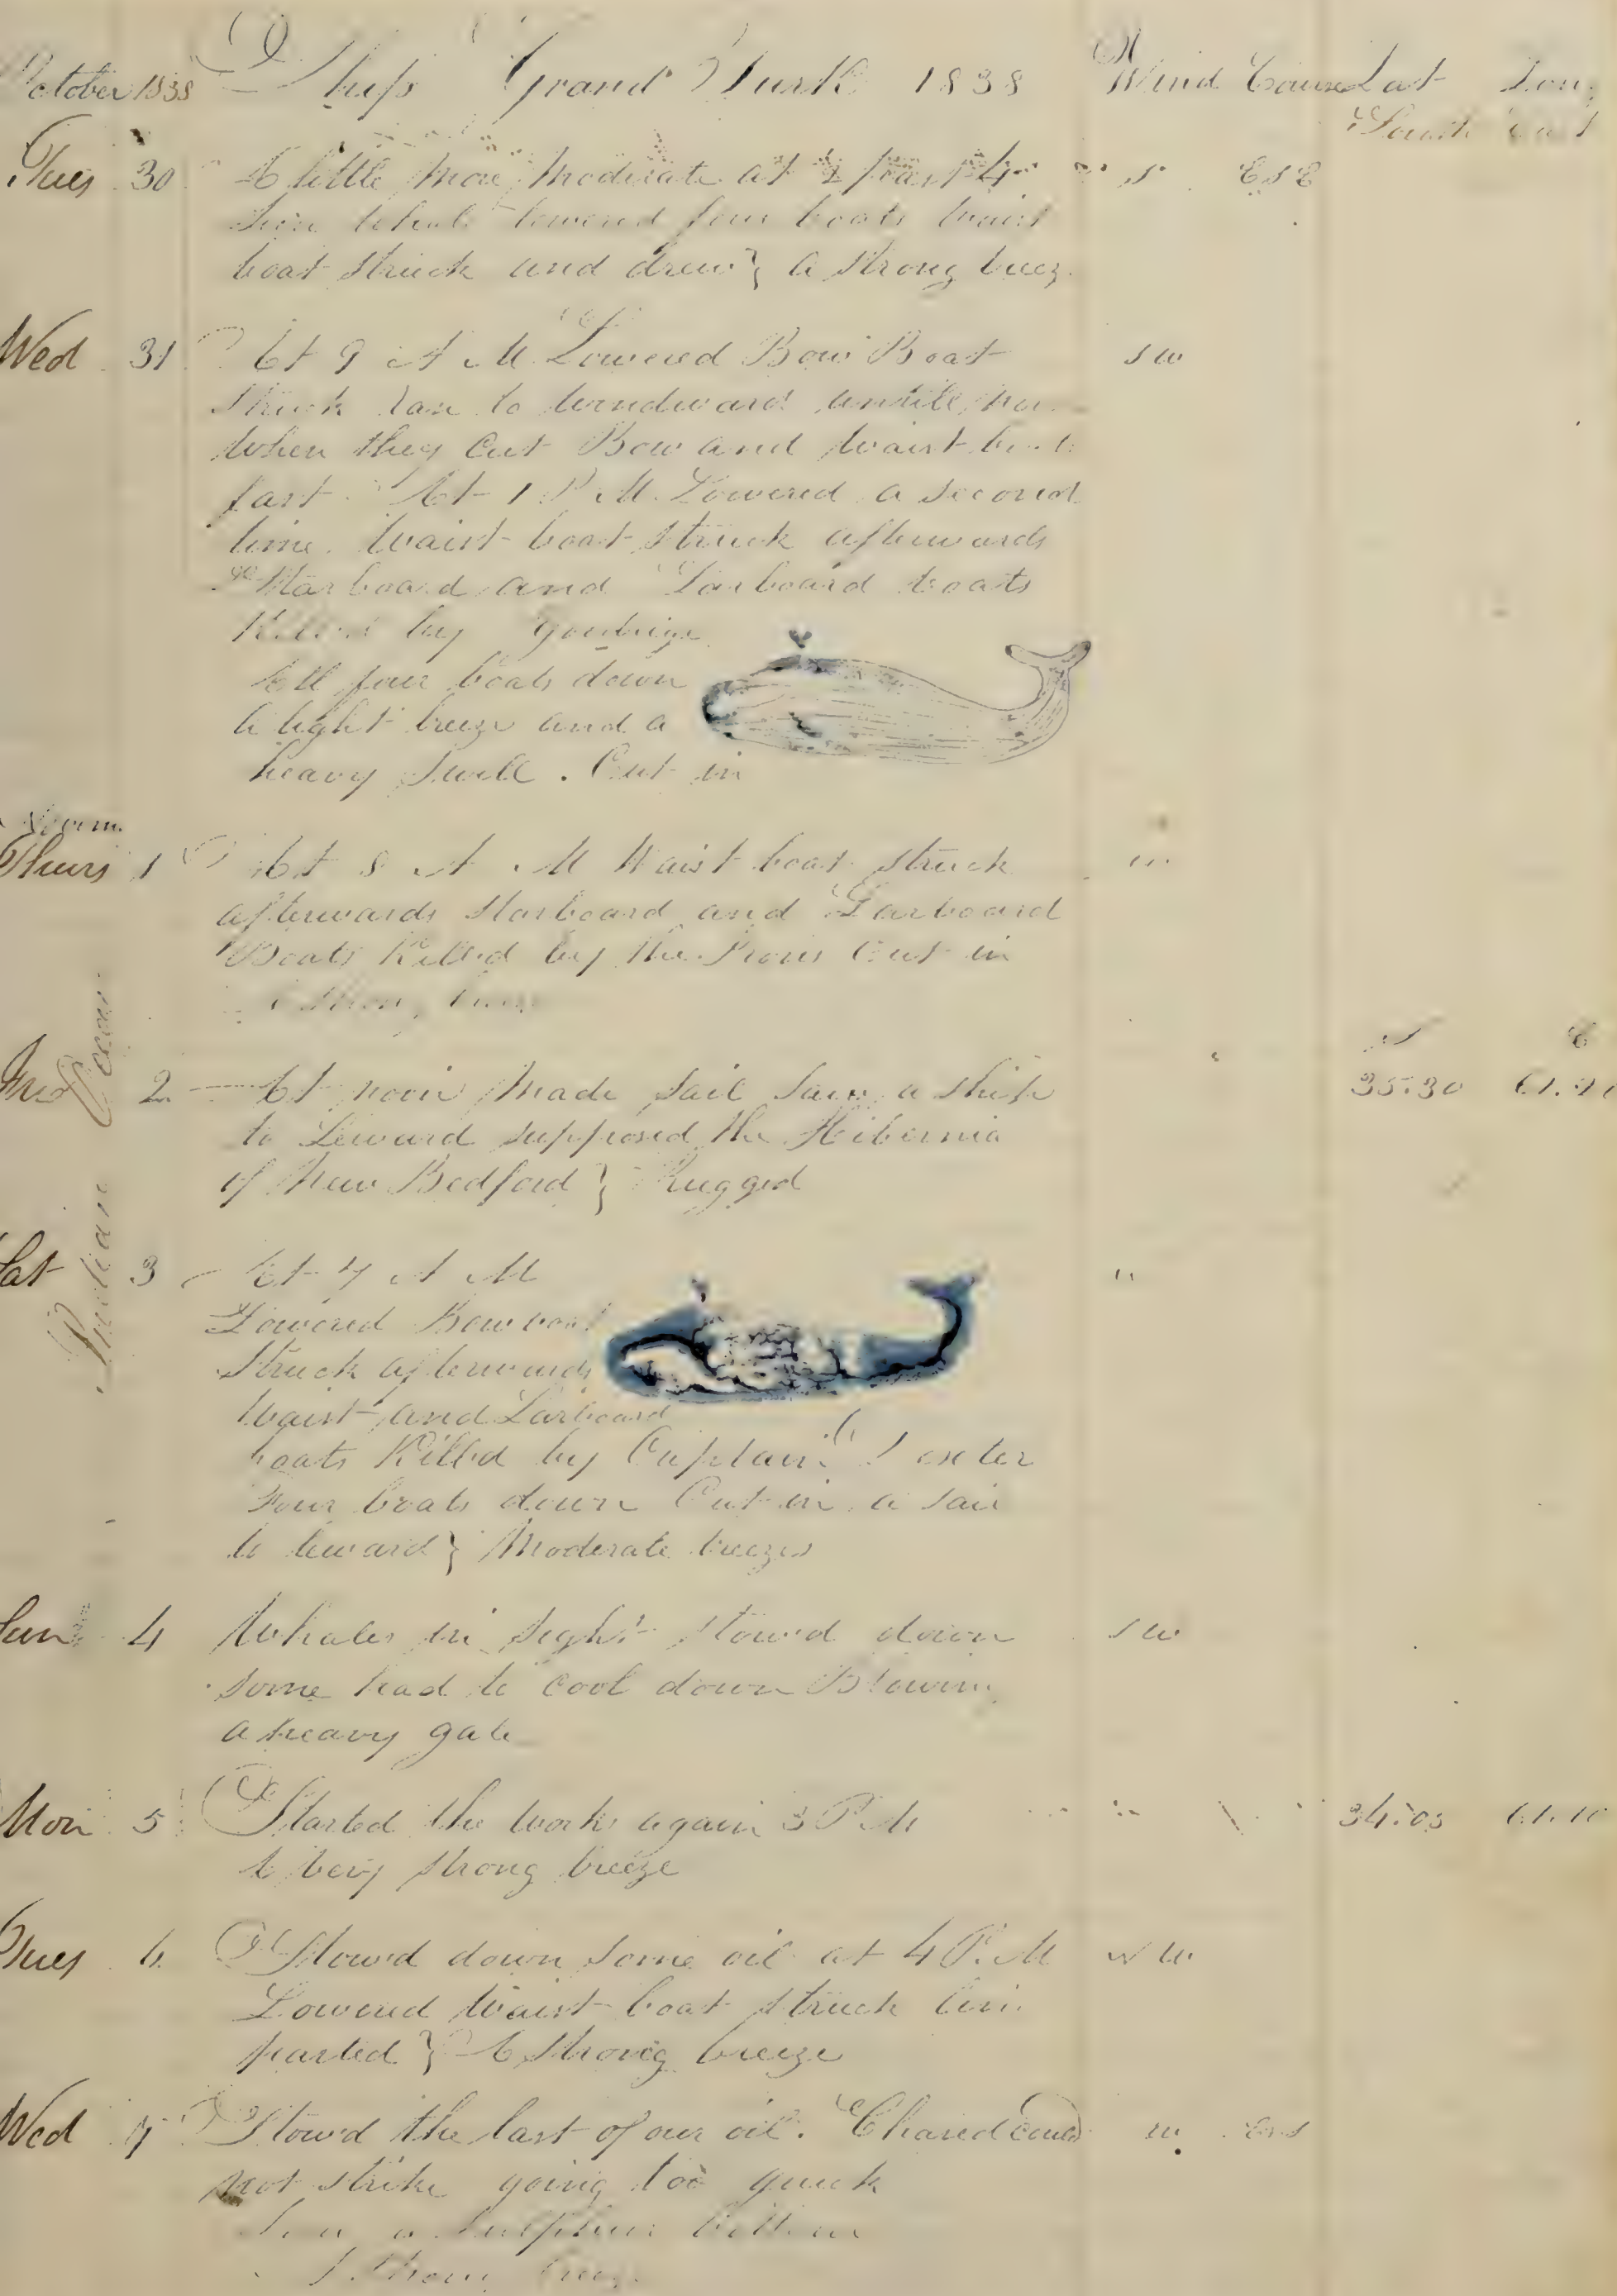 October 1838 Ship Grand Turk 1838 Wind Course Lat Lon
South East
Tues 30 A little more moderate at ½ past 4 S ESE
whale lowered four boats waist
boat struck and drew } a strong breez
Wed 31 At 9 A M Lowered Bow Boat SW
Struck ran to windward untill
When they Cut Bow and Waist
fast. At 1 P.M. Lowered a second
time. Waist boat struck afterwards
Starboard and Larboard boats
Killed by
All four boats down
A light breeze and a
heavy swell. Cut in
Novem
Thurs 1 At 8 A M Waist boat struck "
afterwards Starboard and Larboard
Boats Killed by the Cut in
A strong
Indian Ocean
S E
2 At noon made sail saw a ship 35.30
to Leward supposed the Hibernia
of New Bedford } Rugged
Sat 3 At 7 A M "
Lowered Bow boat
Struck afterwards
Waist and Larboard
boats Killed by Captain
Four boats down Cut in a sail
to leward } Moderate breezes
Sun 4 Whales in sight stowd down SW
some had to cool down Blowin
a heavy gale
Mon 5 Started the works again 3 P M 34.03
A very strong breeze
Tues 6 Stowd down some oil at 4 P. M
Lowered Waist boat struck
parted } A strong breeze
Wed 7 Stowd the last of our oil. Chased could
not strike going too quick
a Sulphur Bottom